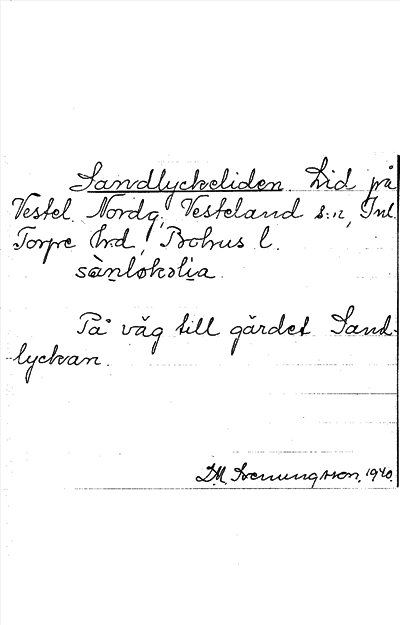 Sandlyckeliden. Lid på
Vestel. Nordg., Vesteland s:n, Inl.
Torpe hrd, Bohus l.
sànløkəlìa.
På väg till gärdet Sand-
lyckan.
D.M. Svenungsson, 1940.